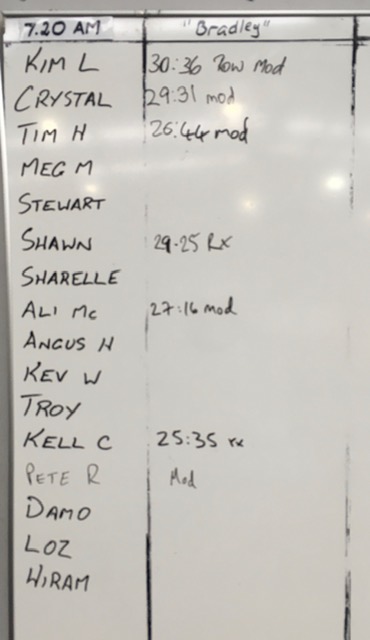 7.20 AM "Bradley"
KIM L 30:36 Row Mod
CRYSTAL 29:31 mod
TIM H 26:44 mod
MEG M
STEWART
SHAWN 29.25 RX
SHARELLE
ALI Mc 27:16 mod
ANGUS H
KEV W
TROY
KELL C 25:35 rx
PETE R Mod
DAMO
LOZ
HIRAM